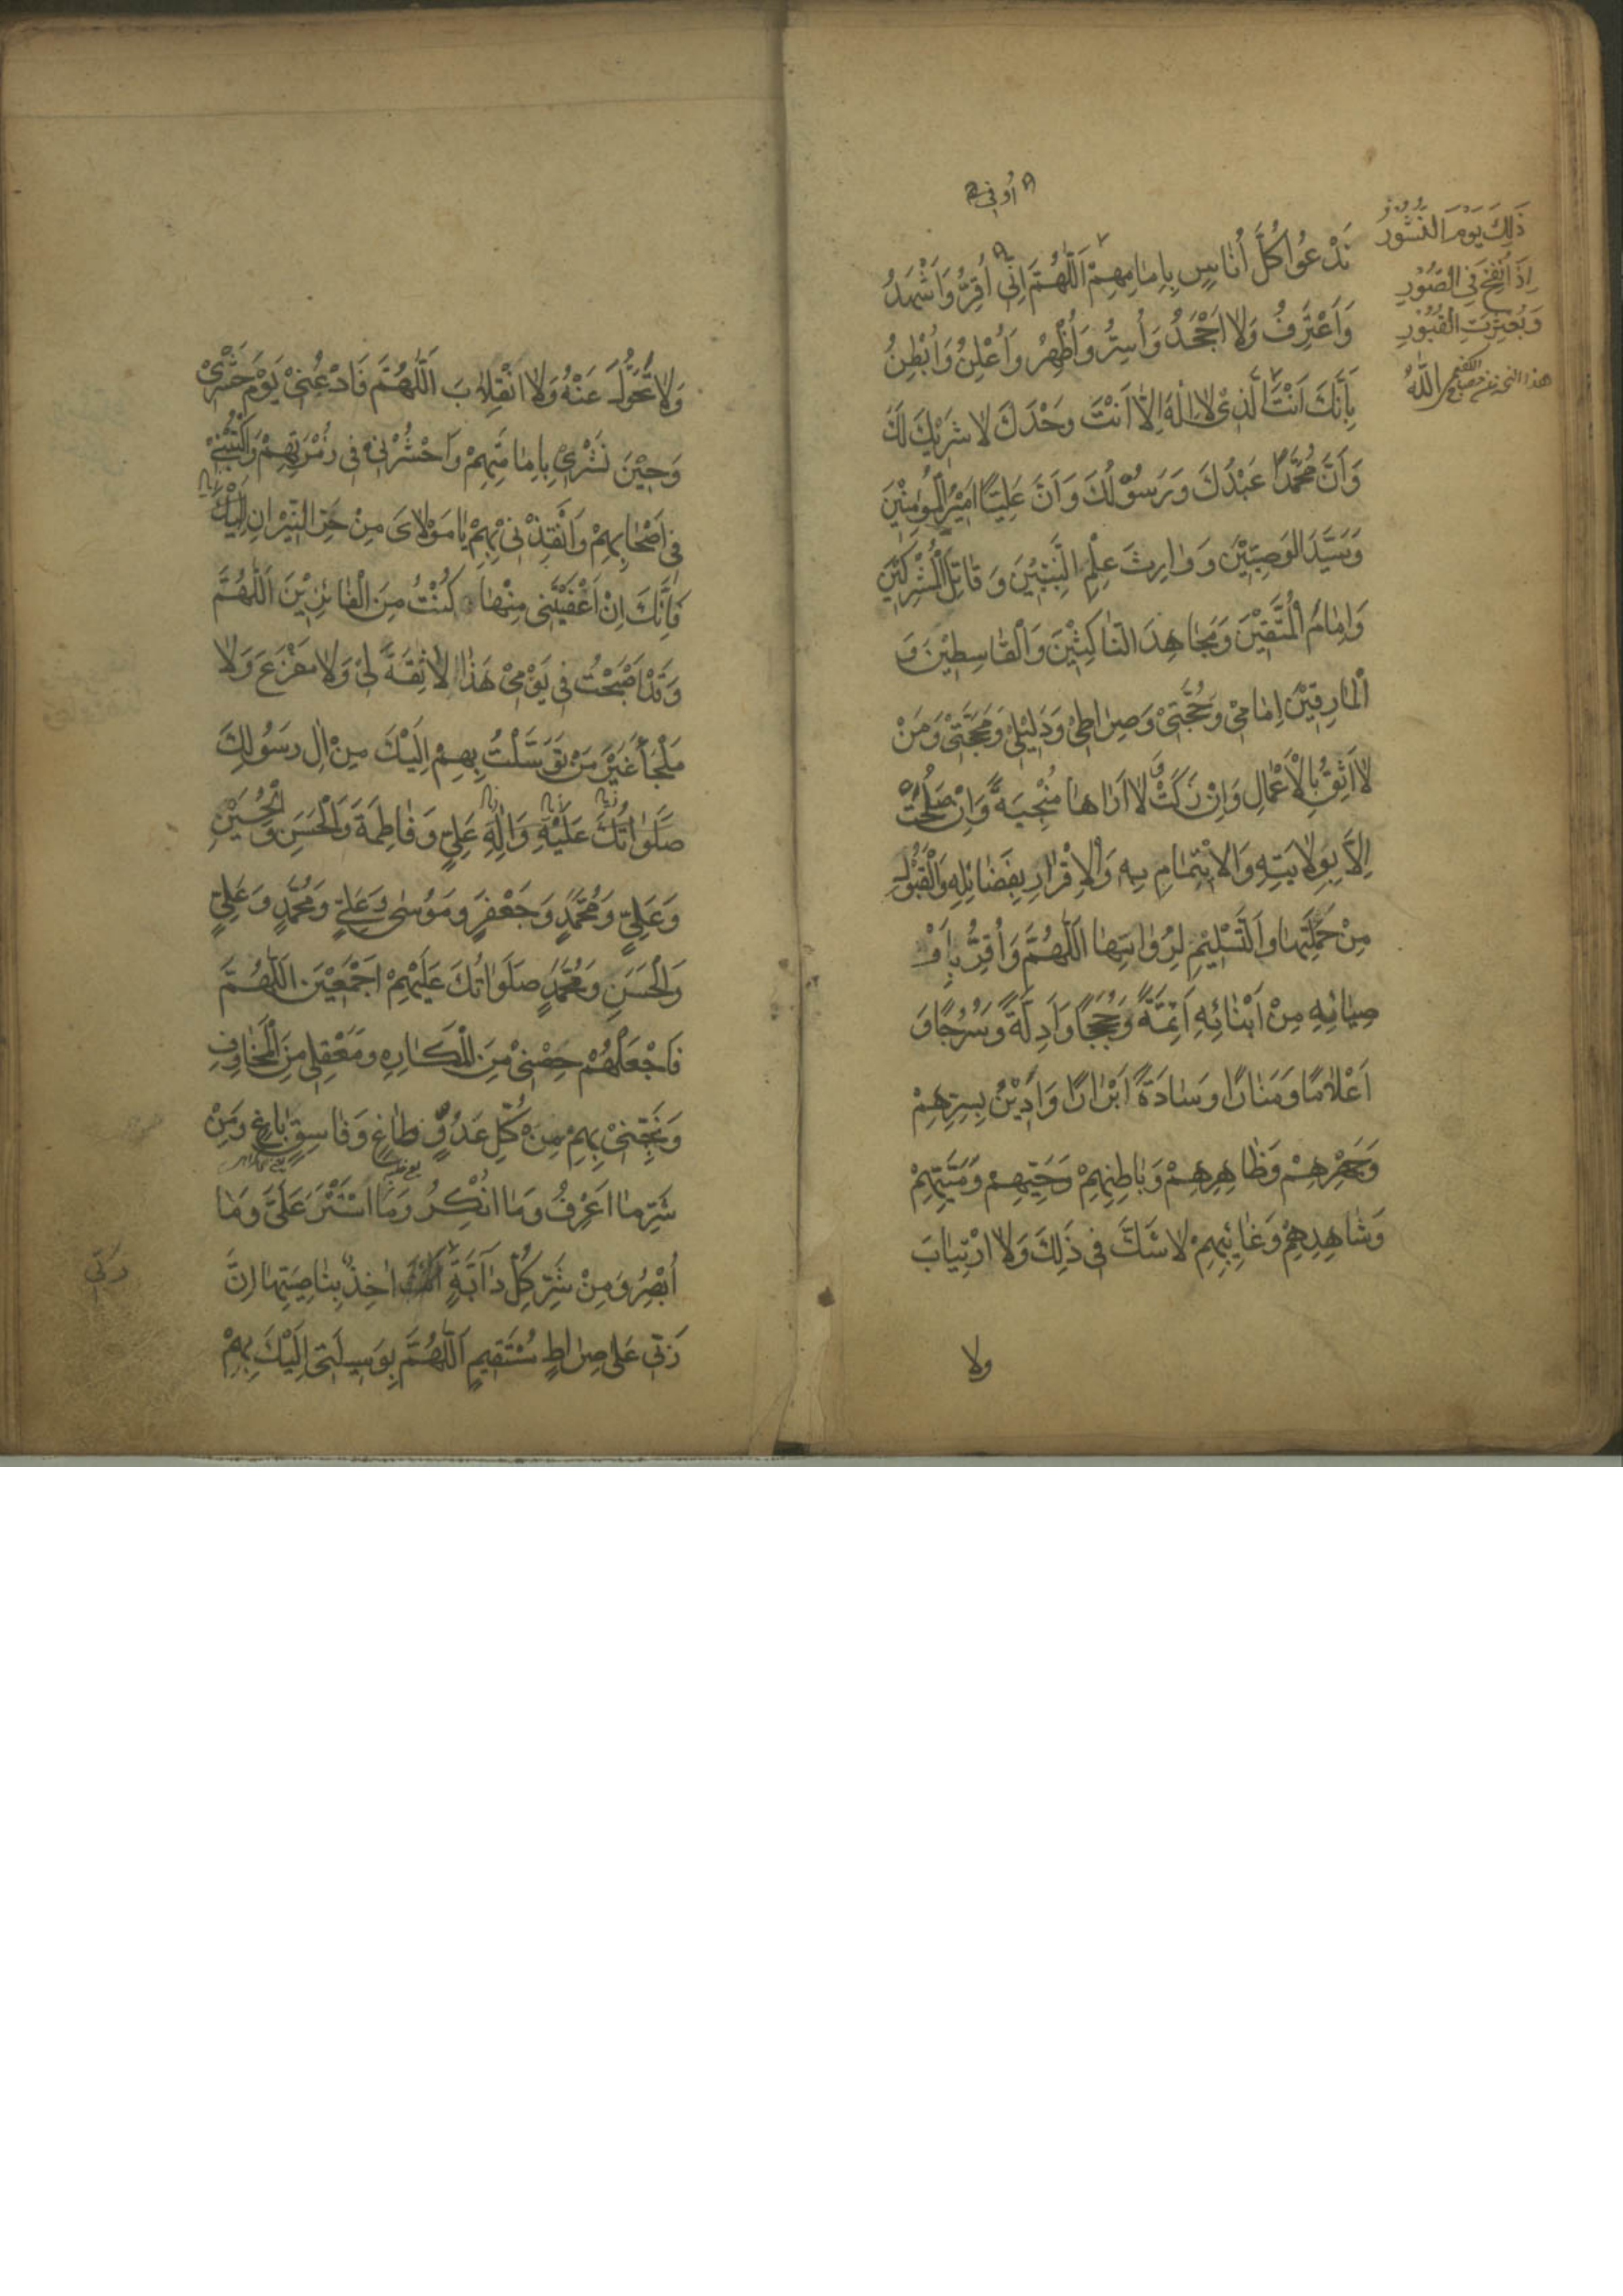 أوفي
نَدْعُوا كُلَّ أُنَاسٍ بِإِمَامِهِمْ اَللّٰهُمَّ اِنِّي أُقِرُّ وَاَشْهَدُ
وَاَعْتَرِفُ وَلَا اَجْحَدُ وَاُسِرُّ وَاُظْهِرُ وَاُعْلِنُ وَاُبْطِنُ
بِأَنَّكَ اَنْتَ الَّذِي لَا اِلٰهَ اِلَّا اَنْتَ وَحْدَكَ لَا شَرِيْكَ لَكَ
وَاَنَّ مُحَمَّدًا عَبْدُكَ وَرَسُوْلُكَ وَاَنَّ عَلِيًّا اَمِيْرُ الْمُؤْمِنِيْنَ
وَسَيِّدَ الْوَصِيِّيْنَ وَوَارِثَ عِلْمِ النَّبِيِّيْنَ وَقَاتِلَ الْمُشْرِكِيْنَ
وَاِمَامَ الْمُتَّقِيْنَ وَمُجَاهِدَ النَّاكِثِيْنَ وَالْقَاسِطِيْنَ وَ
الْمَارِقِيْنَ اِمَامِيْ وَحُجَّتِيْ وَصِرَاطِيْ وَدَلِيْلِيْ وَمَحَجَّتِيْ وَمَنْ
لَا اَثِقُ بِالْاَعْمَالِ وَاِنْ زَكَتْ وَلَا اَرَاهَا مُنْجِيَةً وَاِنْ صَلُحَتْ
اِلَّا بِوِلَايَتِهِ وَالْاِيْتِمَامِ بِهِ وَالْاِقْرَارِ بِفَضَائِلِهِ وَالْقَبُوْلِ
مِنْ حَمَلَتِهَا وَالتَّسْلِيْمِ لِرُوَاتِهَا اَللّٰهُمَّ وَاُقِرُّ بِاَوْ
صِيَائِهِ مِنْ اَبْنَائِهِ اَئِمَّةً وَحُجَجًا وَاَدِلَّةً وَسُرُجًا وَ
اَعْلَامًا وَمَنَارًا وَسَادَةً اَبْرَارًا وَاَدِيْنُ بِسِرِّهِمْ
وَجَهْرِهِمْ وَظَاهِرِهِمْ وَبَاطِنِهِمْ وَحَيِّهِمْ وَمَيِّتِهِمْ
وَشَاهِدِهِمْ وَغَائِبِهِمْ لَا شَكَّ فِي ذٰلِكَ وَلَا ارْتِيَابَ
ولا
ذٰلِكَ يَوْمَ النُّشُوْرِ
اِذَا نُفِخَ فِي الصُّوْرِ
وَبُعْثِرَتِ الْقُبُوْرِ
وَلَا تَحَوُّلَ عَنْهُ وَلَا انْقِلَابَ اَللّٰهُمَّ فَادْعُنِيْ يَوْمَ حَشْرِيْ
وَحِيْنَ نَشْرِيْ بِاِمَامَتِهِمْ وَاحْشُرْنِيْ فِي زُمْرَتِهِمْ وَاكْتُبْنِيْ
فِي اَصْحَابِهِمْ وَاَنْقِذْنِيْ بِهِمْ يَا مَوْلَايَ مِنْ حَرِّ النِّيْرَانِ
فَاِنَّكَ اِنْ اَعْفَيْتَنِي مِنْهَا كُنْتُ مِنَ الْفَائِزِيْنَ اَللّٰهُمَّ
وَقَدْ اَصْبَحْتُ فِي يَوْمِيْ هٰذَا لَا ثِقَةَ لِيْ وَلَا مَفْزَعَ وَلَا
مَلْجَأَ غَيْرَ مَنْ تَوَسَّلْتُ بِهِمْ اِلَيْكَ مِنْ اٰلِ رَسُوْلِكَ
صَلَوَاتُكَ عَلَيْهِ وَاٰلِهِ عَلِيٍّ وَفَاطِمَةَ وَالْحَسَنِ وَالْحُسَيْنِ
وَعَلِيٍّ وَمُحَمَّدٍ وَجَعْفَرٍ وَمُوْسٰى وَعَلِيٍّ وَمُحَمَّدٍ وَعَلِيٍّ
وَالْحَسَنِ وَمُحَمَّدٍ صَلَوَاتُكَ عَلَيْهِمْ اَجْمَعِيْنَ اَللّٰهُمَّ
فَاجْعَلْهُمْ حِصْنِيْ مِنَ الْمَكَارِهِ وَمَعْقِلِي مِنَ الْمَخَاوِفِ
وَنَجِّنِيْ بِهِمْ مِنْ كُلِّ عَدُوٍّ طَاغٍ وَفَاسِقٍ بَاغٍ وَمِنْ
شَرِّ مَا اَعْرِفُ وَمَا اُنْكِرُ وَمَا اسْتَتَرَ عَلَيَّ وَمَا
اُبْصِرُ وَمِنْ شَرِّ كُلِّ دَآبَّةٍ اٰخِذٌ بِنَاصِيَتِهَا اِنَّ
رَبِّي عَلٰى صِرَاطٍ مُسْتَقِيْمٍ اَللّٰهُمَّ بِوَسِيْلَتِي اِلَيْكَ بِهِمْ